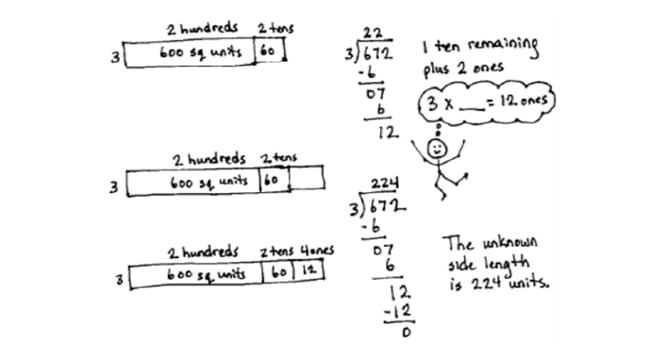 2 hundreds 2 tens
3 600 sq units 60
22
3)672
-6
07
6
12
1 ten remaining
plus 2 ones
3 x ___ = 12 ones
2 hundreds 2 tens
3 600 sq units 60
224
3)672
-6
07
6
12
-12
0
2 hundreds 2 tens 4 ones
3 600 sq units 60 12
The unknown
side length
is 224 units.